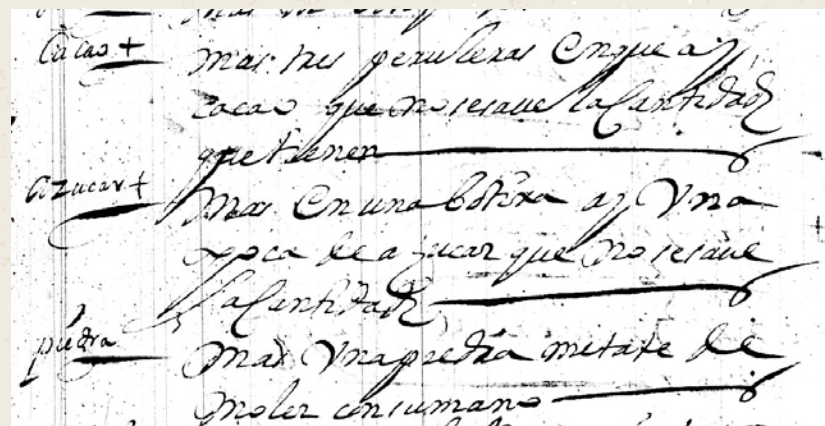 Cacao +
mas tres peruleras Enque ay
cacao que no sesaue la Cantidad
que tienen
azucar +
mas En una botixa ay Vna
poca de açucar que no sesaue
la Cantidad
piedra
mas Vna piedra metate de
moler con su mano